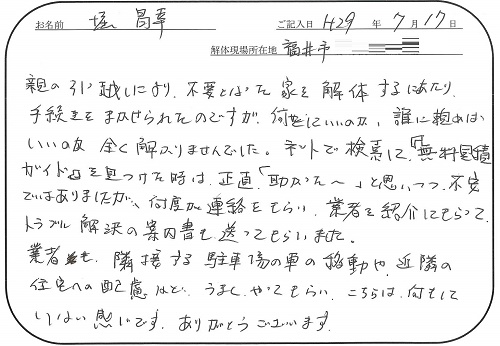 お名前 堀 昌幸 ご記入日 H29 年 7 月 17 日
解体現場所在地 福井市
親の引越しにより、不要となった家を解体するにあたり、
手続きをまかせられたのですが、何をどこにいいのか、誰に頼めば
いいのか全く解りませんでした。ネットで検索して、「無料見積
ガイド」を見つけた時は、正直「助かった〜」と思いつつ、不安
ではありましたが、何度か連絡をもらい、業者を紹介してもらって、
トラブル解決の案内書も送ってもらいました。
業者も、隣接する駐車場の車の移動や、近隣の
住宅への配慮など、うまくやってもらい、こちらは、何もして
いない感じです。ありがとうございます。